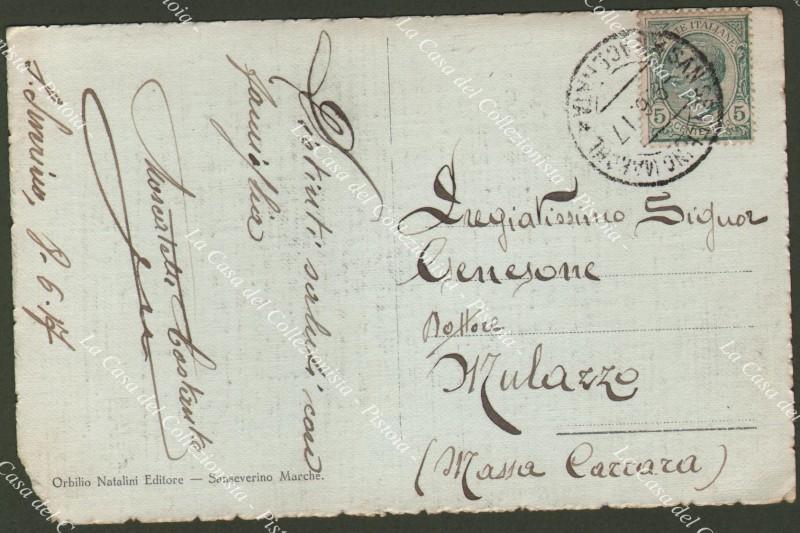 S. Severino, 8.6.17
Distinti saluti con
famiglia
Costante
Pregiatissimo Signor
Genesone
Dottore
Mulazzo
(Massa Carrara)
Orbilio Natalini Editore — Sanseverino Marche.
POSTE ITALIANE
5 5
CENT
La Casa del Collezionista - Pistoia -